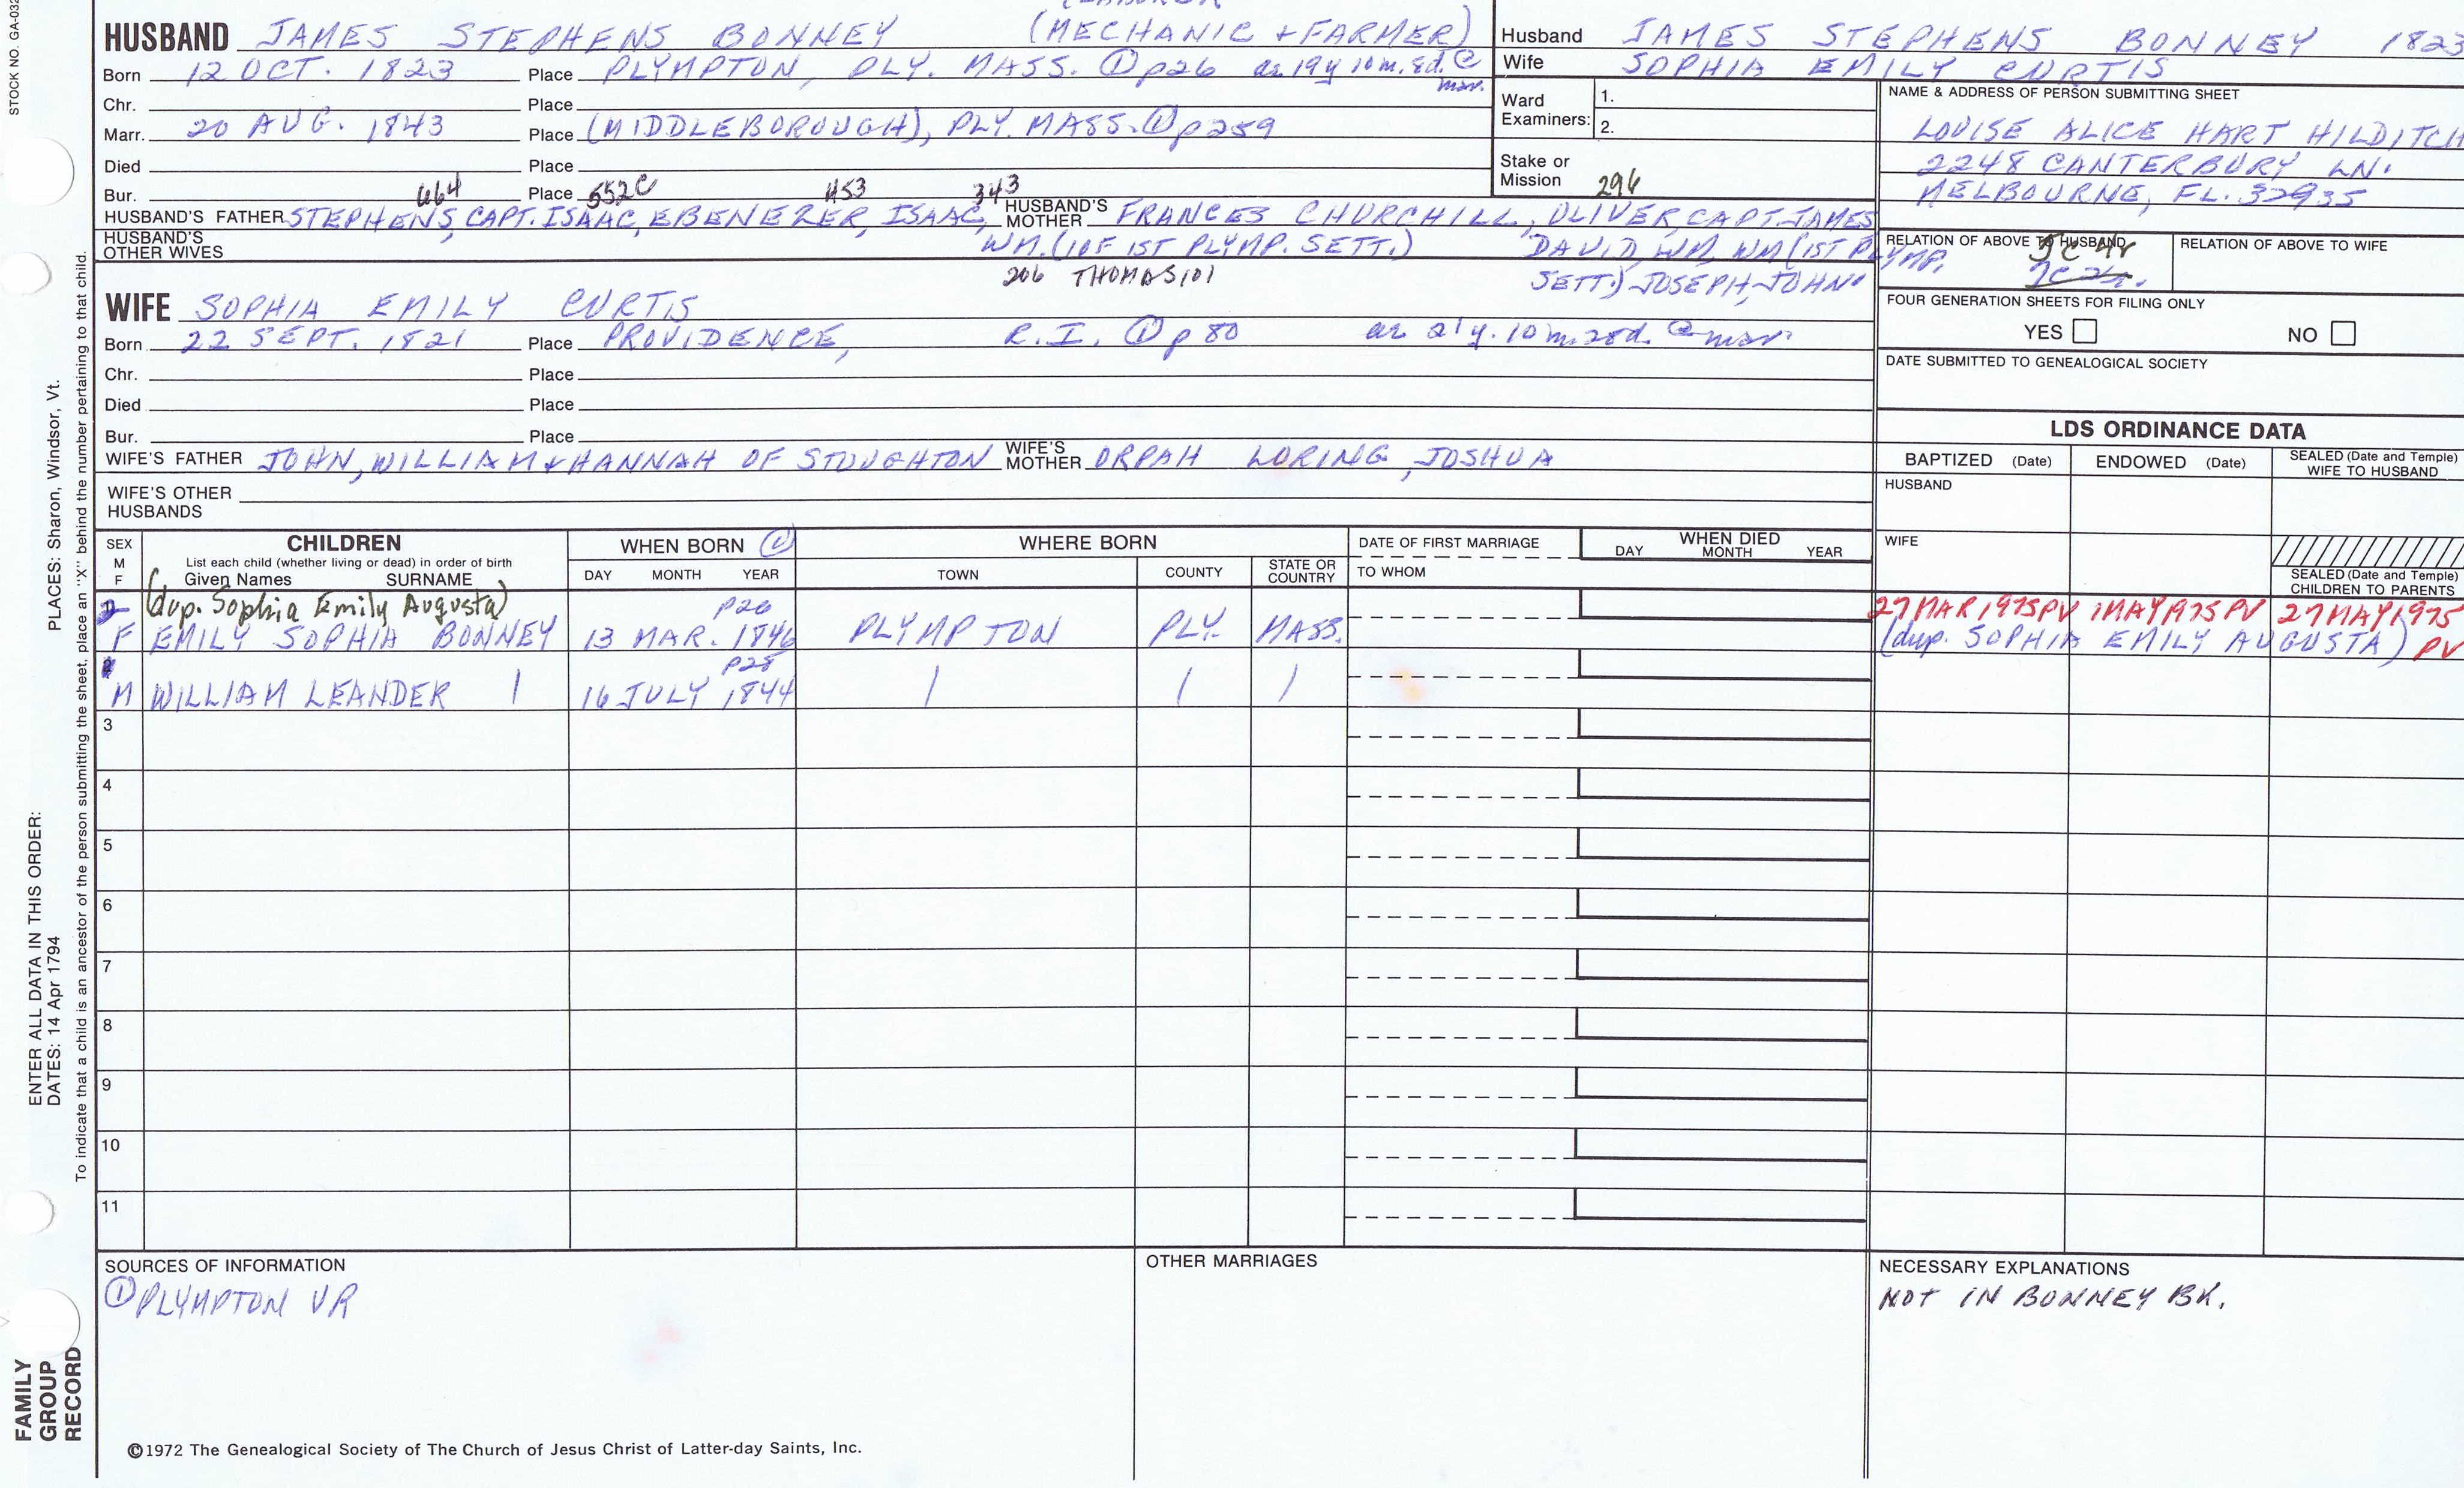 STOCK NO. GA-032
(MECHANIC + FARMER)
HUSBAND JAMES STEPHENS BONNEY
Born 12 OCT. 1823 Place PLYMPTON, PLY. MASS. ① p26 as 19y 10m. 8d. @ mar.
Chr. Place
Marr. 20 AUG. 1843 Place (MIDDLEBOROUGH), PLY. MASS. ① p259
Died Place
Bur. Place
664 552C 453 343
HUSBAND'S FATHER STEPHENS, CAPT. ISAAC, EBENEZER, ISAAC, HUSBAND'S MOTHER FRANCES CHURCHILL, OLIVER, CAPT. JAMES
HUSBAND'S OTHER WIVES
WM. (1 OF 1ST PLYMP. SETT.) DAVID, WM, WM (1ST PLYMP.
206 THOMAS 101 SETT.) JOSEPH, JOHN
WIFE SOPHIA EMILY CURTIS
Born 22 SEPT. 1821 Place PROVIDENCE, R.I. ① p 80 as 21y. 10m. 28d. @ mar.
Chr. Place
Died Place
Bur. Place
WIFE'S FATHER JOHN, WILLIAM + HANNAH OF STOUGHTON WIFE'S MOTHER ORPAH LORING, JOSHUA
WIFE'S OTHER HUSBANDS
Husband JAMES STEPHENS BONNEY 1823
Wife SOPHIA EMILY CURTIS
Ward Examiners: 1.
2.
Stake or Mission 296
NAME & ADDRESS OF PERSON SUBMITTING SHEET
LOUISE ALICE HART HILDITCH
2248 CANTERBURY LN.
MELBOURNE, FL. 32935
RELATION OF ABOVE TO HUSBAND 5c 4r RELATION OF ABOVE TO WIFE
FOUR GENERATION SHEETS FOR FILING ONLY
YES NO
DATE SUBMITTED TO GENEALOGICAL SOCIETY
LDS ORDINANCE DATA
BAPTIZED (Date) ENDOWED (Date) SEALED (Date and Temple) WIFE TO HUSBAND
HUSBAND
WIFE
SEALED (Date and Temple) CHILDREN TO PARENTS
SEX M F CHILDREN WHEN BORN ① WHERE BORN DATE OF FIRST MARRIAGE WHEN DIED
List each child (whether living or dead) in order of birth
Given Names SURNAME DAY MONTH YEAR TOWN COUNTY STATE OR COUNTRY TO WHOM DAY MONTH YEAR
(dup. Sophia Emily Augusta) p26 27 MAR 1975 PV 1 MAY 1975 PV 27 MAY 1975 PV
F EMILY SOPHIA BONNEY 13 MAR. 1846 PLYMPTON PLY. MASS. (dup. SOPHIA EMILY AUGUSTA)
p28
M WILLIAM LEANDER 16 JULY 1844
3
4
5
6
7
8
9
10
11
SOURCES OF INFORMATION
① PLYMPTON VR
OTHER MARRIAGES
NECESSARY EXPLANATIONS
NOT IN BONNEY BK.
©1972 The Genealogical Society of The Church of Jesus Christ of Latter-day Saints, Inc.
ENTER ALL DATA IN THIS ORDER:
DATES: 14 Apr 1794 PLACES: Sharon, Windsor, Vt.
To indicate that a child is an ancestor of the person submitting the sheet, place an "X" behind the number pertaining to that child.
FAMILY
GROUP
RECORD